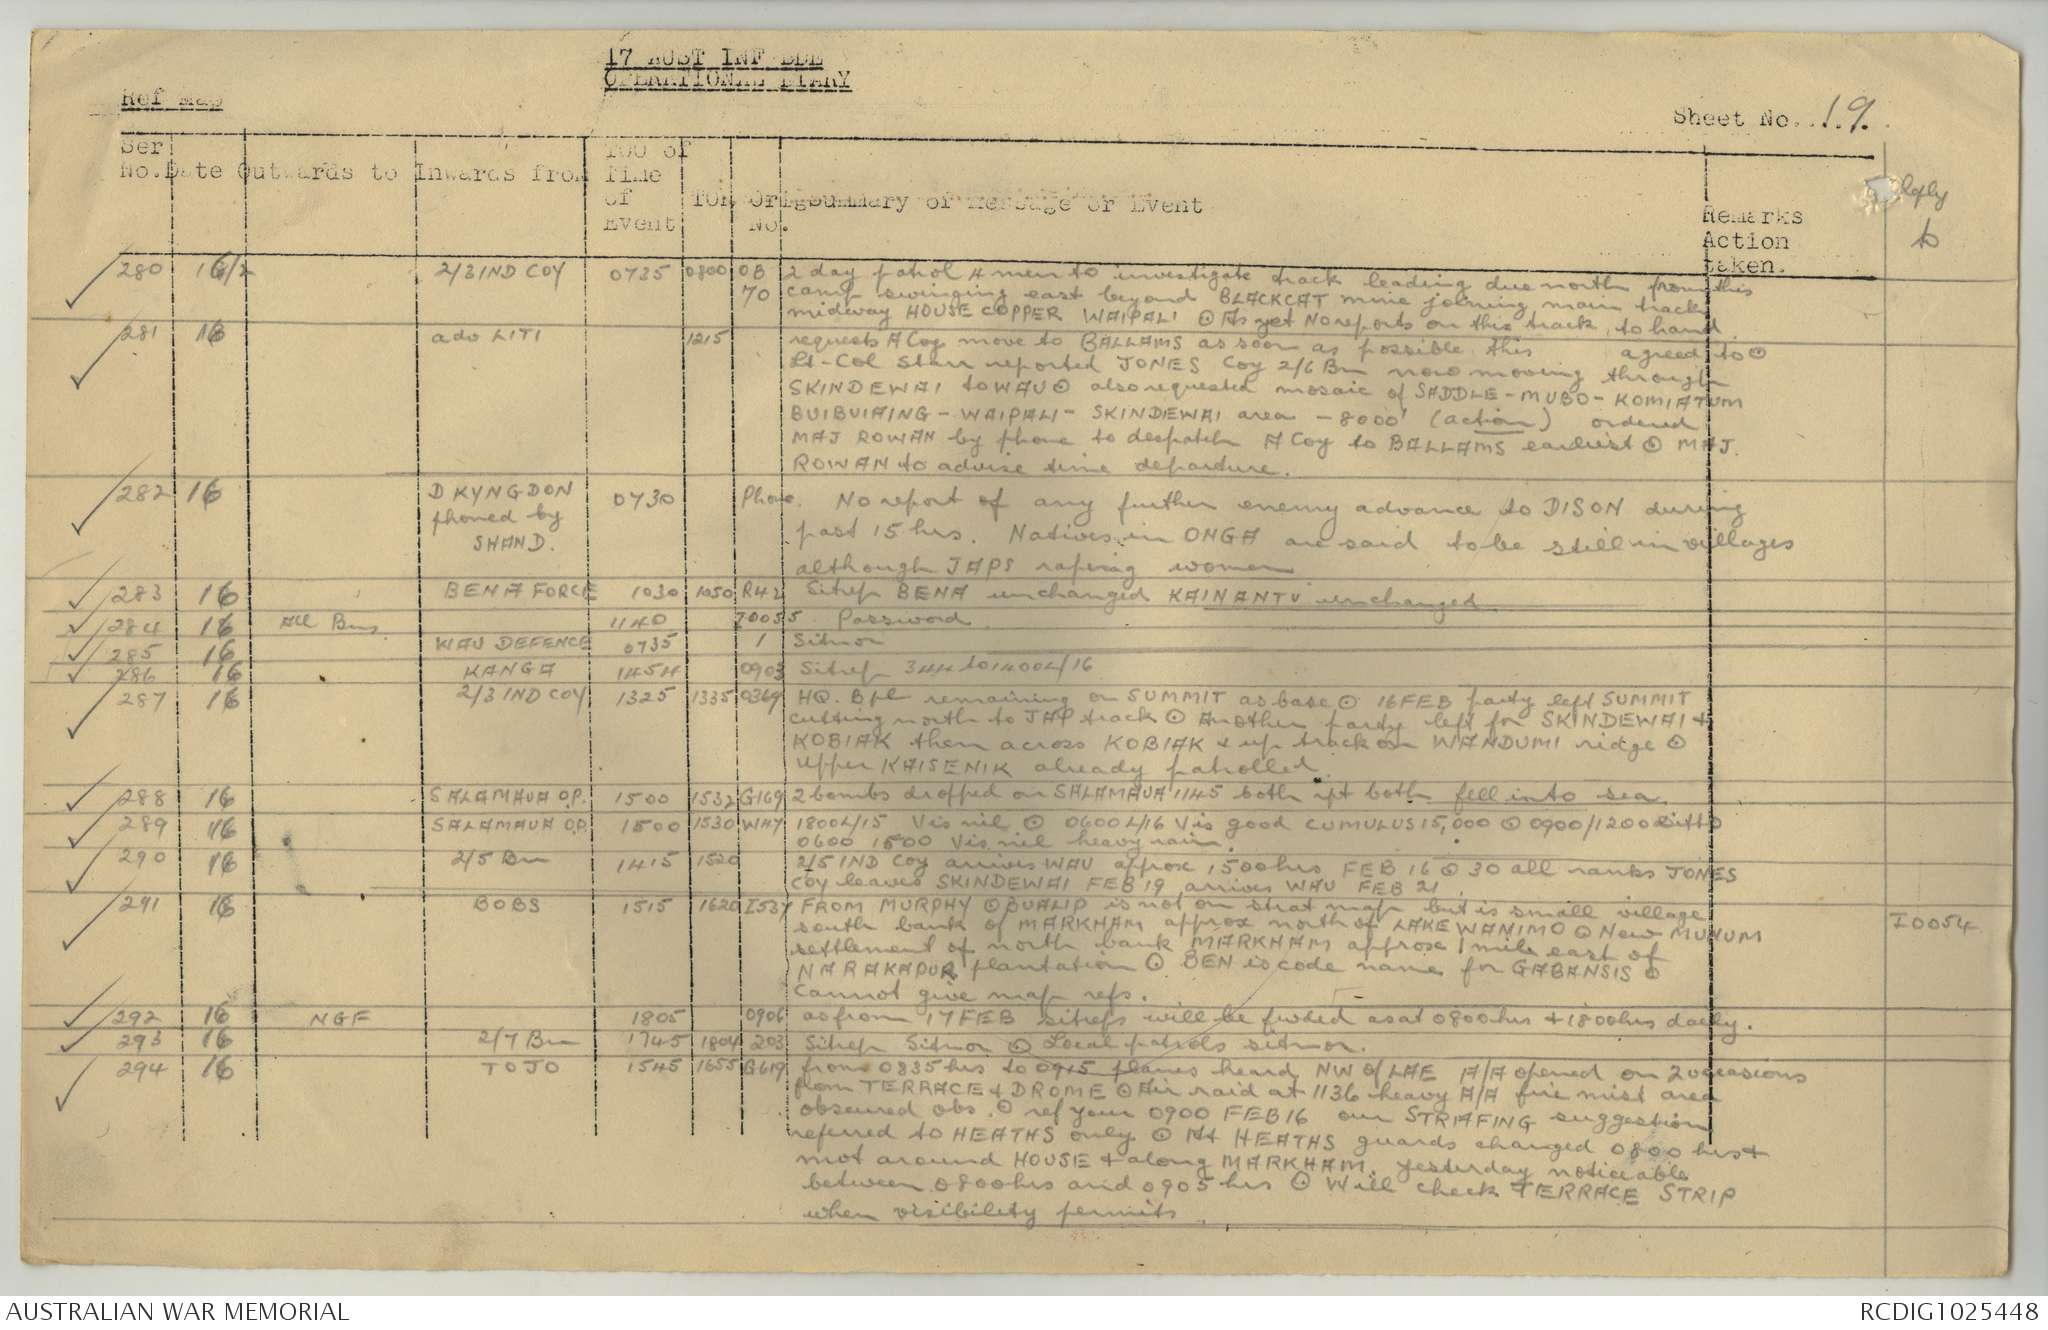 17 AUST INF BDE
OPERATIONAL DIARY
Ref Map
Sheet No. 19.
Ser No. Date Outwards to Inwards from TOO of Time of Event TOR Orig No. Summary of Message or Event Remarks Action taken. Reply to
280 16/2 2/3 IND COY 0735 0800 OB 70 2 day patrol 4 men to investigate track leading due north from this
camp swinging east beyond BLACKCAT mine joining main track
midway HOUSE COPPER WAIPALI ⊙ As yet No reports on this track to hand.
281 16 adv LITI 1215 requests A Coy move to BALLAMS as soon as possible this agreed to ⊙
Lt-Col Starr reported JONES Coy 2/6 Bn now moving through
SKINDEWAI to WAU ⊙ also requested mosaic of SADDLE - MUBO - KOMIATUM
BUIBUIAING - WAIPALI - SKINDEWAI area - 8000' (action) ordered
MAJ ROWAN by phone to despatch A Coy to BALLAMS earliest ⊙ MAJ.
ROWAN to advise time departure.
282 16 D KYNGDON phoned by SHAND. 0730 Phone. No report of any further enemy advance to DISON during
past 15 hrs. Natives in ONGA are said to be still in villages
although JAPS raping women
283 16 BENA FORCE 1030 1050 R42 Sitrep BENA unchanged KAINANTU unchanged
284 16 All Bns 1140 I0055 Password.
285 16 WAU DEFENCE 0735 1 Sitnor
286 16 KANGA 1454 0903 Sitrep 344 to 1400L/16
287 16 2/3 IND COY 1325 1335 0369 HQ. B pl remaining on SUMMIT as base ⊙ 16 FEB party left SUMMIT
cutting north to JAP track ⊙ Another party left for SKINDEWAI &
KOBIAK then across KOBIAK & up track on WANDUMI ridge ⊙
Upper KAISENIK already patrolled
288 16 SALAMAUA O.P. 1500 1532 G169 2 bombs dropped on SALAMAUA 1145 both rpt both fell into sea.
289 16 SALAMAUA O.P. 1500 1530 WH7 1800L/15 Vis nil ⊙ 0600L/16 Vis good CUMULUS 15,000 ⊙ 0900/1200 ditto
0600 1500 Vis nil heavy rain.
290 16 2/5 Bn 1415 1520 2/5 IND Coy arrives WAU approx 1500 hrs FEB 16 ⊙ 30 all ranks JONES
Coy leaves SKINDEWAI FEB 19 arrives WAU FEB 21.
291 16 BOBS 1515 1620 I537 FROM MURPHY ⊙ BUALIP is not on strat map but is small village
south bank of MARKHAM approx north of LAKE WANIMO ⊙ New MUNUM
settlement of north bank MARKHAM approx 1 mile east of
NARAKAPUR plantation ⊙ BEN is code name for GABANSIS ⊙
Cannot give map refs.
I0054
292 16 NGF 1805 0906 as from 17 FEB sitreps will be fwded as at 0800 hrs & 1800 hrs daily.
293 16 2/7 Bn 1745 1804 203 Sitrep Sitnor ⊙ Local patrols sitnor.
294 16 TOJO 1545 1655 G619 from 0835 hrs to 0915 planes heard NW of LAE A/A opened on 2 occasions
from TERRACE & DROME ⊙ Air raid at 1136 heavy A/A fire mist area
obscured obs. ⊙ ref your 0900 FEB 16 our STRAFING suggestion
referred to HEATHS only ⊙ At HEATHS guards changed 0800 hrs &
mot around HOUSE & along MARKHAM. Yesterday noticeable
between 0800 hrs and 0905 hrs ⊙ Will check TERRACE STRIP
when visibility permits.
AUSTRALIAN WAR MEMORIAL
RCDIG1025448